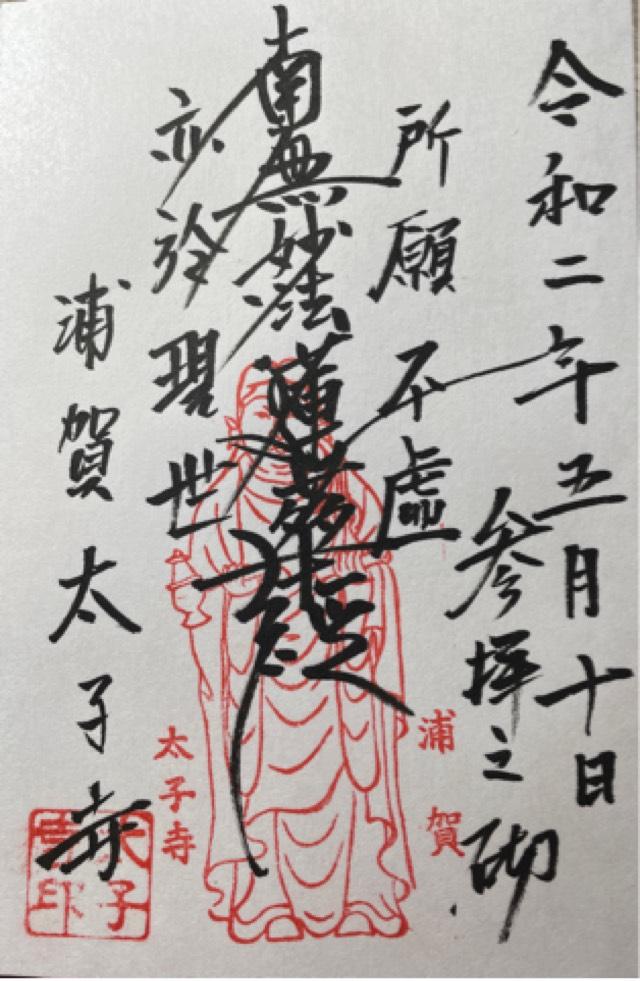 令和二年五月十日
参拝之砌
所願不虚
南無妙法蓮華経
亦於現世
浦賀太子寺
浦賀
太子寺
太子
寺印